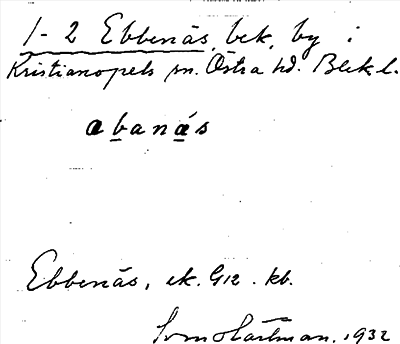 1-2 Ebbenäs, bek, by i
Kristianopels sn. Östra hd. Blekl.
abanäs
Ebbenäs, ek. G12. kb.
Sven Hartman, 1932